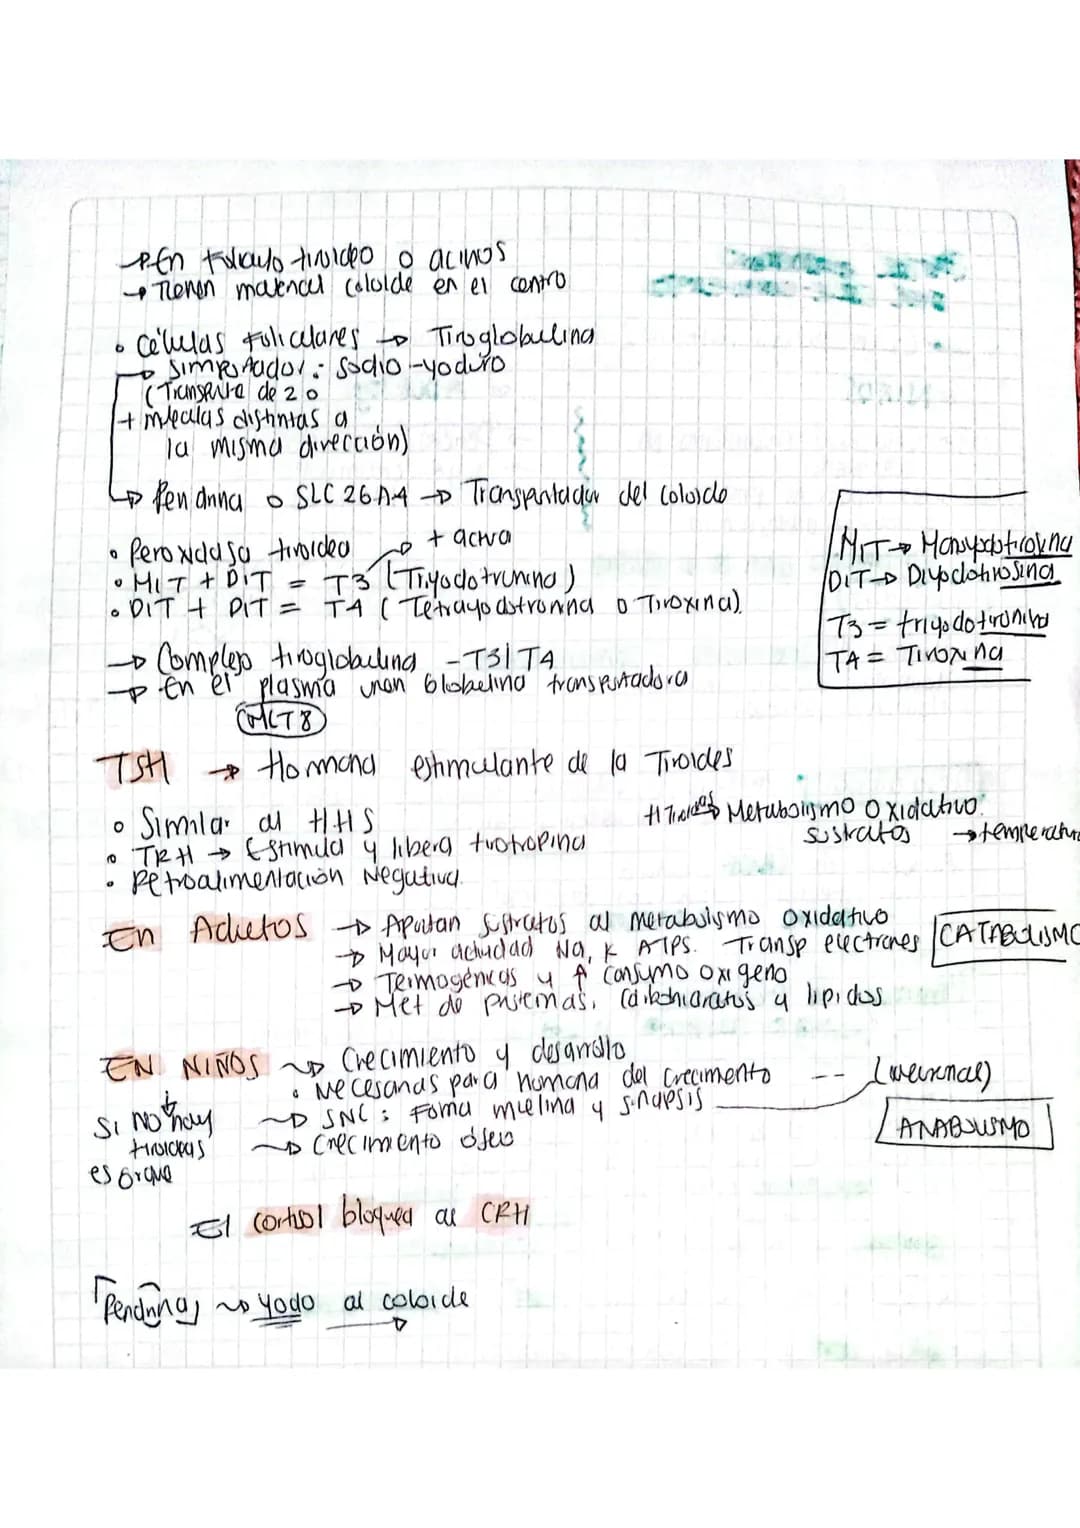 → En folículo tiroideo o acinos
→ Tienen material coloide en el centro
• Células foliculares → Tiroglobulina
→ Simportador: Sodio-yoduro
(Transporte de 2 o
+ moléculas distintas a
la misma dirección)
→ Pendrina o SLC26A4 → Transportador del coloide
• Peroxidasa tiroidea
→ + activa
• MIT + DIT = T3 (Triyodotironina)
• DIT + DIT = T4 (Tetrayodotironina o Tiroxina).
MIT → Monoyodotirosina
DIT → Diyodotirosina
T3 = triyodotironina
T4 = Tiroxina
→ Complejo tiroglobulina - T3/T4
→ En el plasma unen globulina transportadora
(MCT8)
TSH → Hormona estimulante de la Tiroides
• Similar al HHS
• TRH → Estimula y libera tirotropina
• Retroalimentación Negativa.
H Tiroideas → Metabolismo Oxidativo.
sustratos → temperatura
En Adultos → Aportan sustratos al metabolismo oxidativo
→ Mayor actividad Na, K ATPs. Transp electrones
→ Termogénicas y ↑ consumo oxígeno
→ Met de proteínas, carbohidratos y lípidos
CATABOLISMO
EN NIÑOS → Crecimiento y desarrollo
• Necesarias para hormona del crecimiento --
→ SNC: Forma mielina y sinapsis
→ Crecimiento óseo
(neuronal)
ANABOLISMO
Si NO hay
tiroideas
es porque
El cortisol bloquea al CRH
"Pendrina" → yodo al coloide